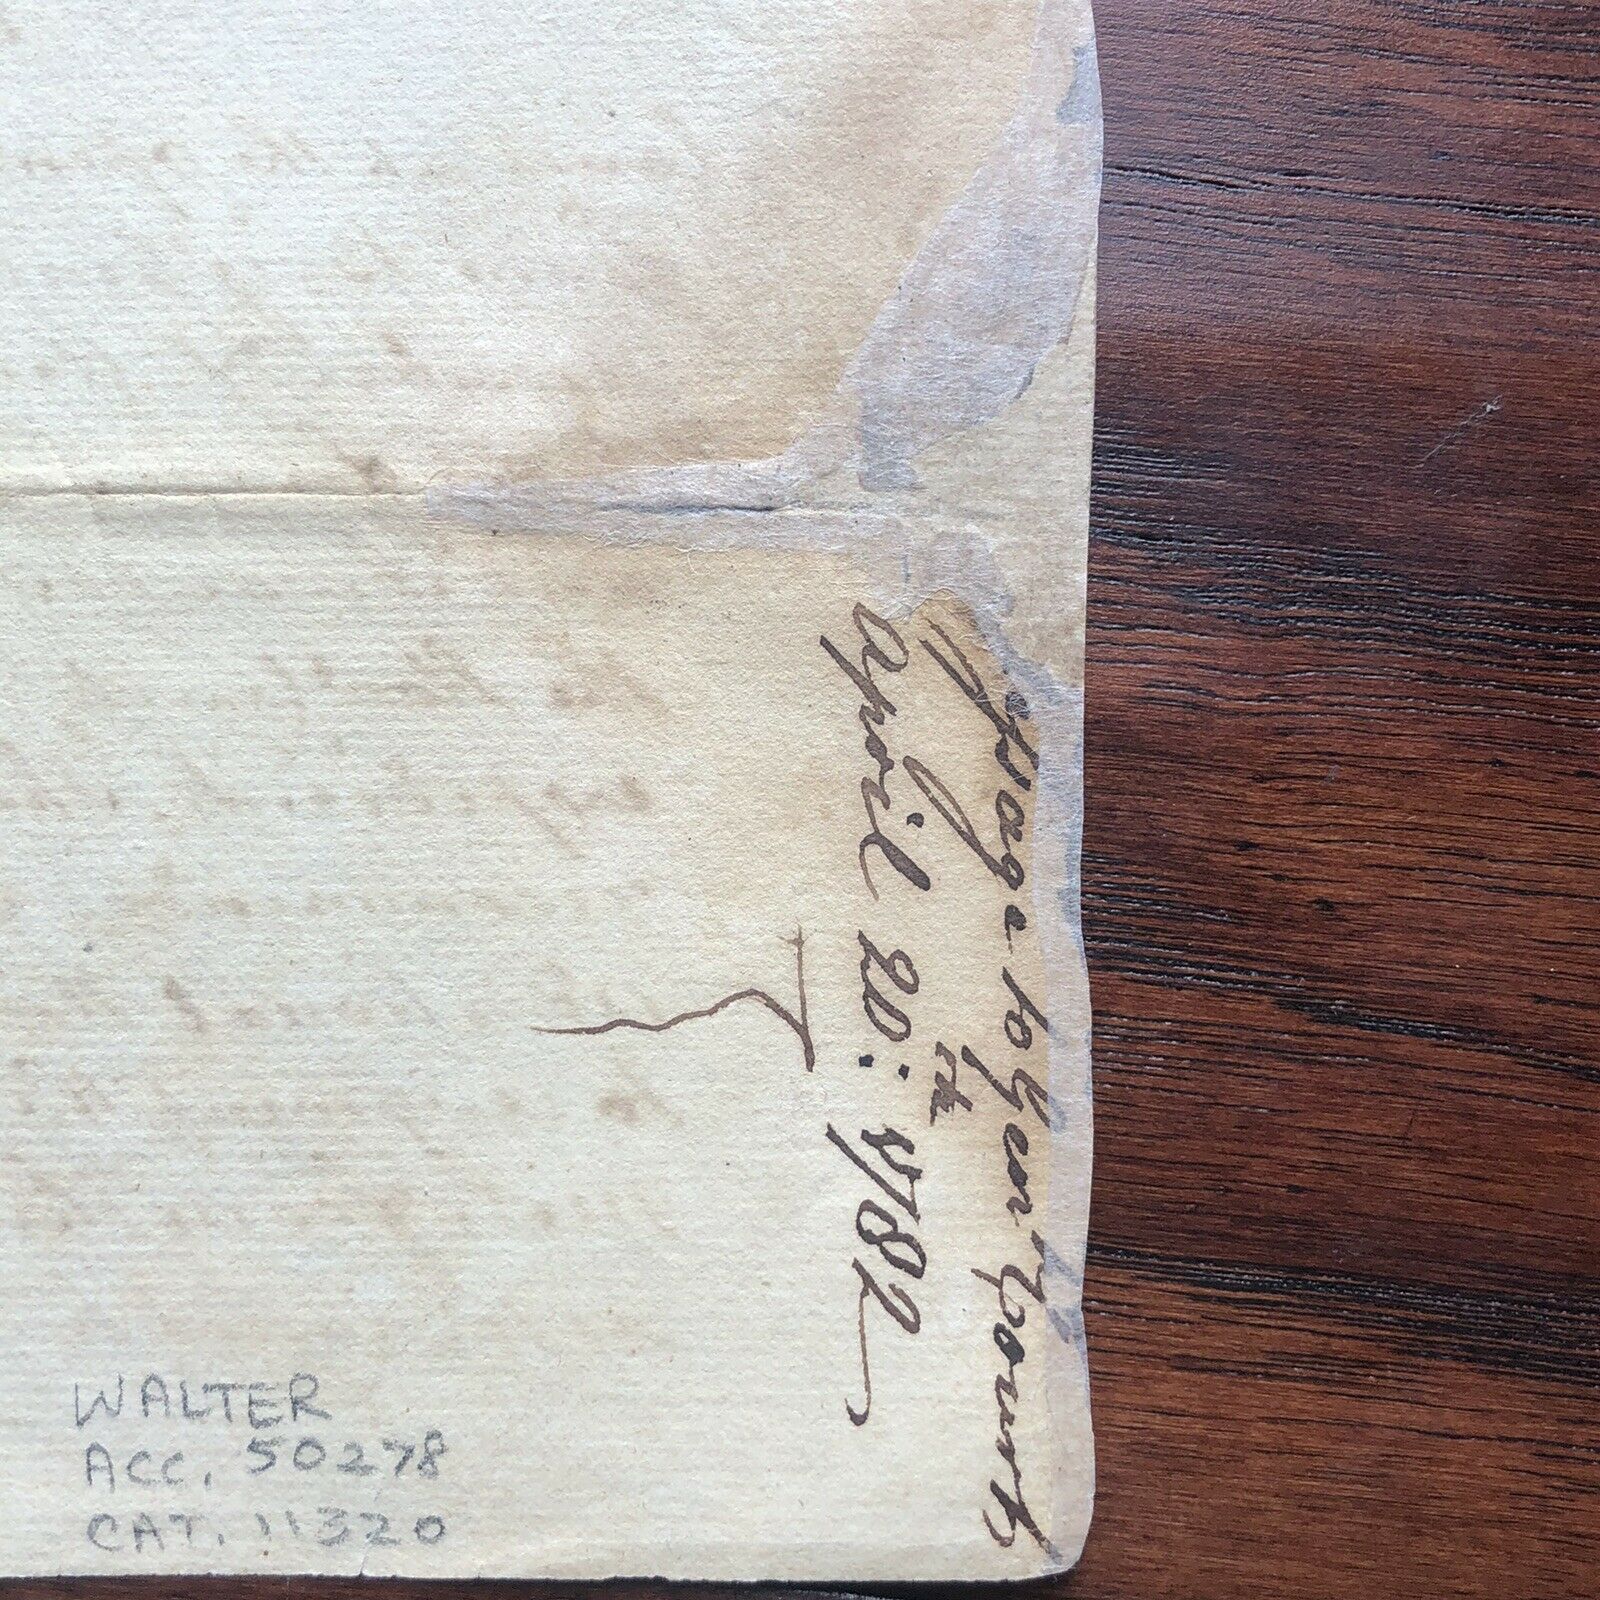 to Gen:l
April 20:th 1782
WALTER
ACC. 50278
CAT. 11320